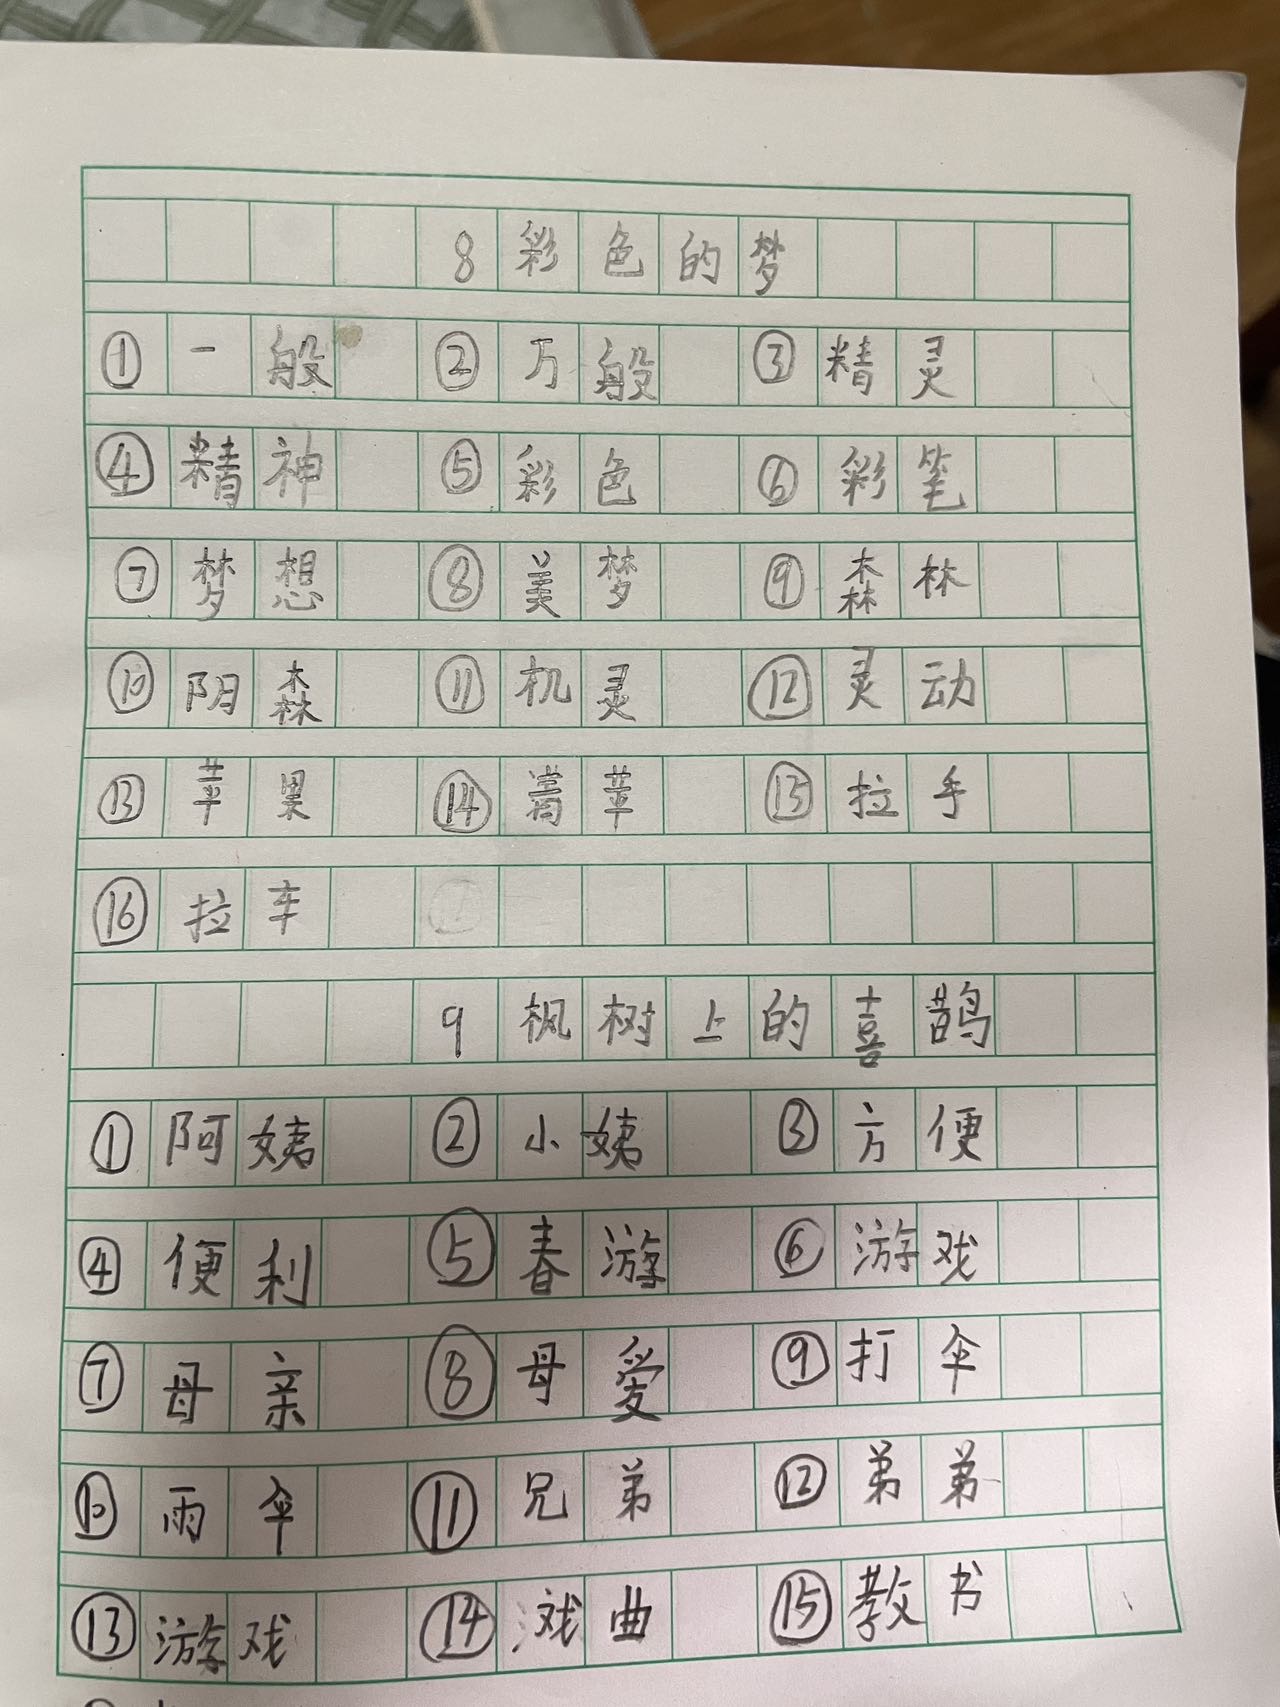 8彩色的梦
①一般 ②万般 ③精灵
④精神 ⑤彩色 ⑥彩笔
⑦梦想 ⑧美梦 ⑨森林
⑩阴森 ⑪机灵 ⑫灵动
⑬苹果 ⑭青苹 ⑮拉手
⑯拉车
9枫树上的喜鹊
①阿姨 ②小姨 ③方便
④便利 ⑤春游 ⑥游戏
⑦母亲 ⑧母爱 ⑨打伞
⑩雨伞 ⑪兄弟 ⑫弟弟
⑬游戏 ⑭戏曲 ⑮教书